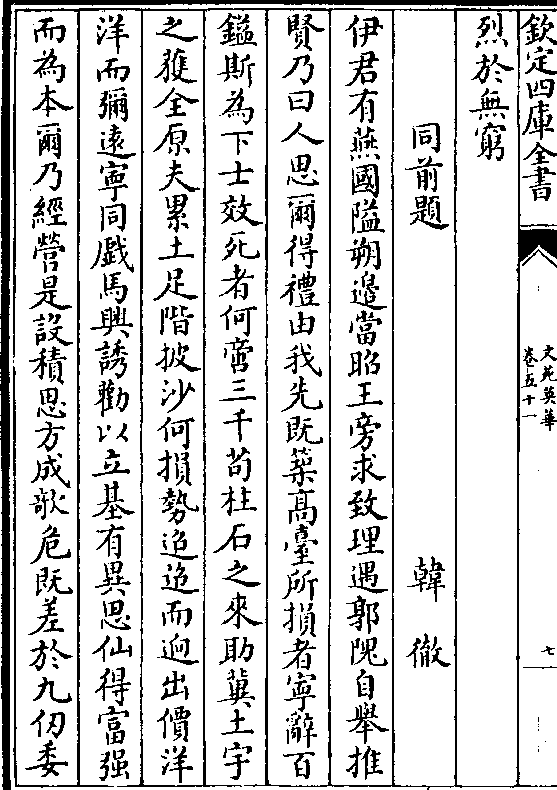 欽定四庫全書
文苑英華
卷五十一
七
烈於無窮
同前題 韓徹
伊君有燕國隘朔邊當昭王旁求致理遇郭隗自舉推
賢乃曰人思爾得禮由我先既築高臺所損者寧辭百
鎰斯為下士效死者何啻三千茍柱石之來助冀土宇
之獲全原夫累土足階披沙何損勢迢迢而逈出價洋
洋而彌遠寧同戲馬興誘勸以立基有異思仙得富强
而為本爾乃經營是設積思方成欹危既差於九仞委